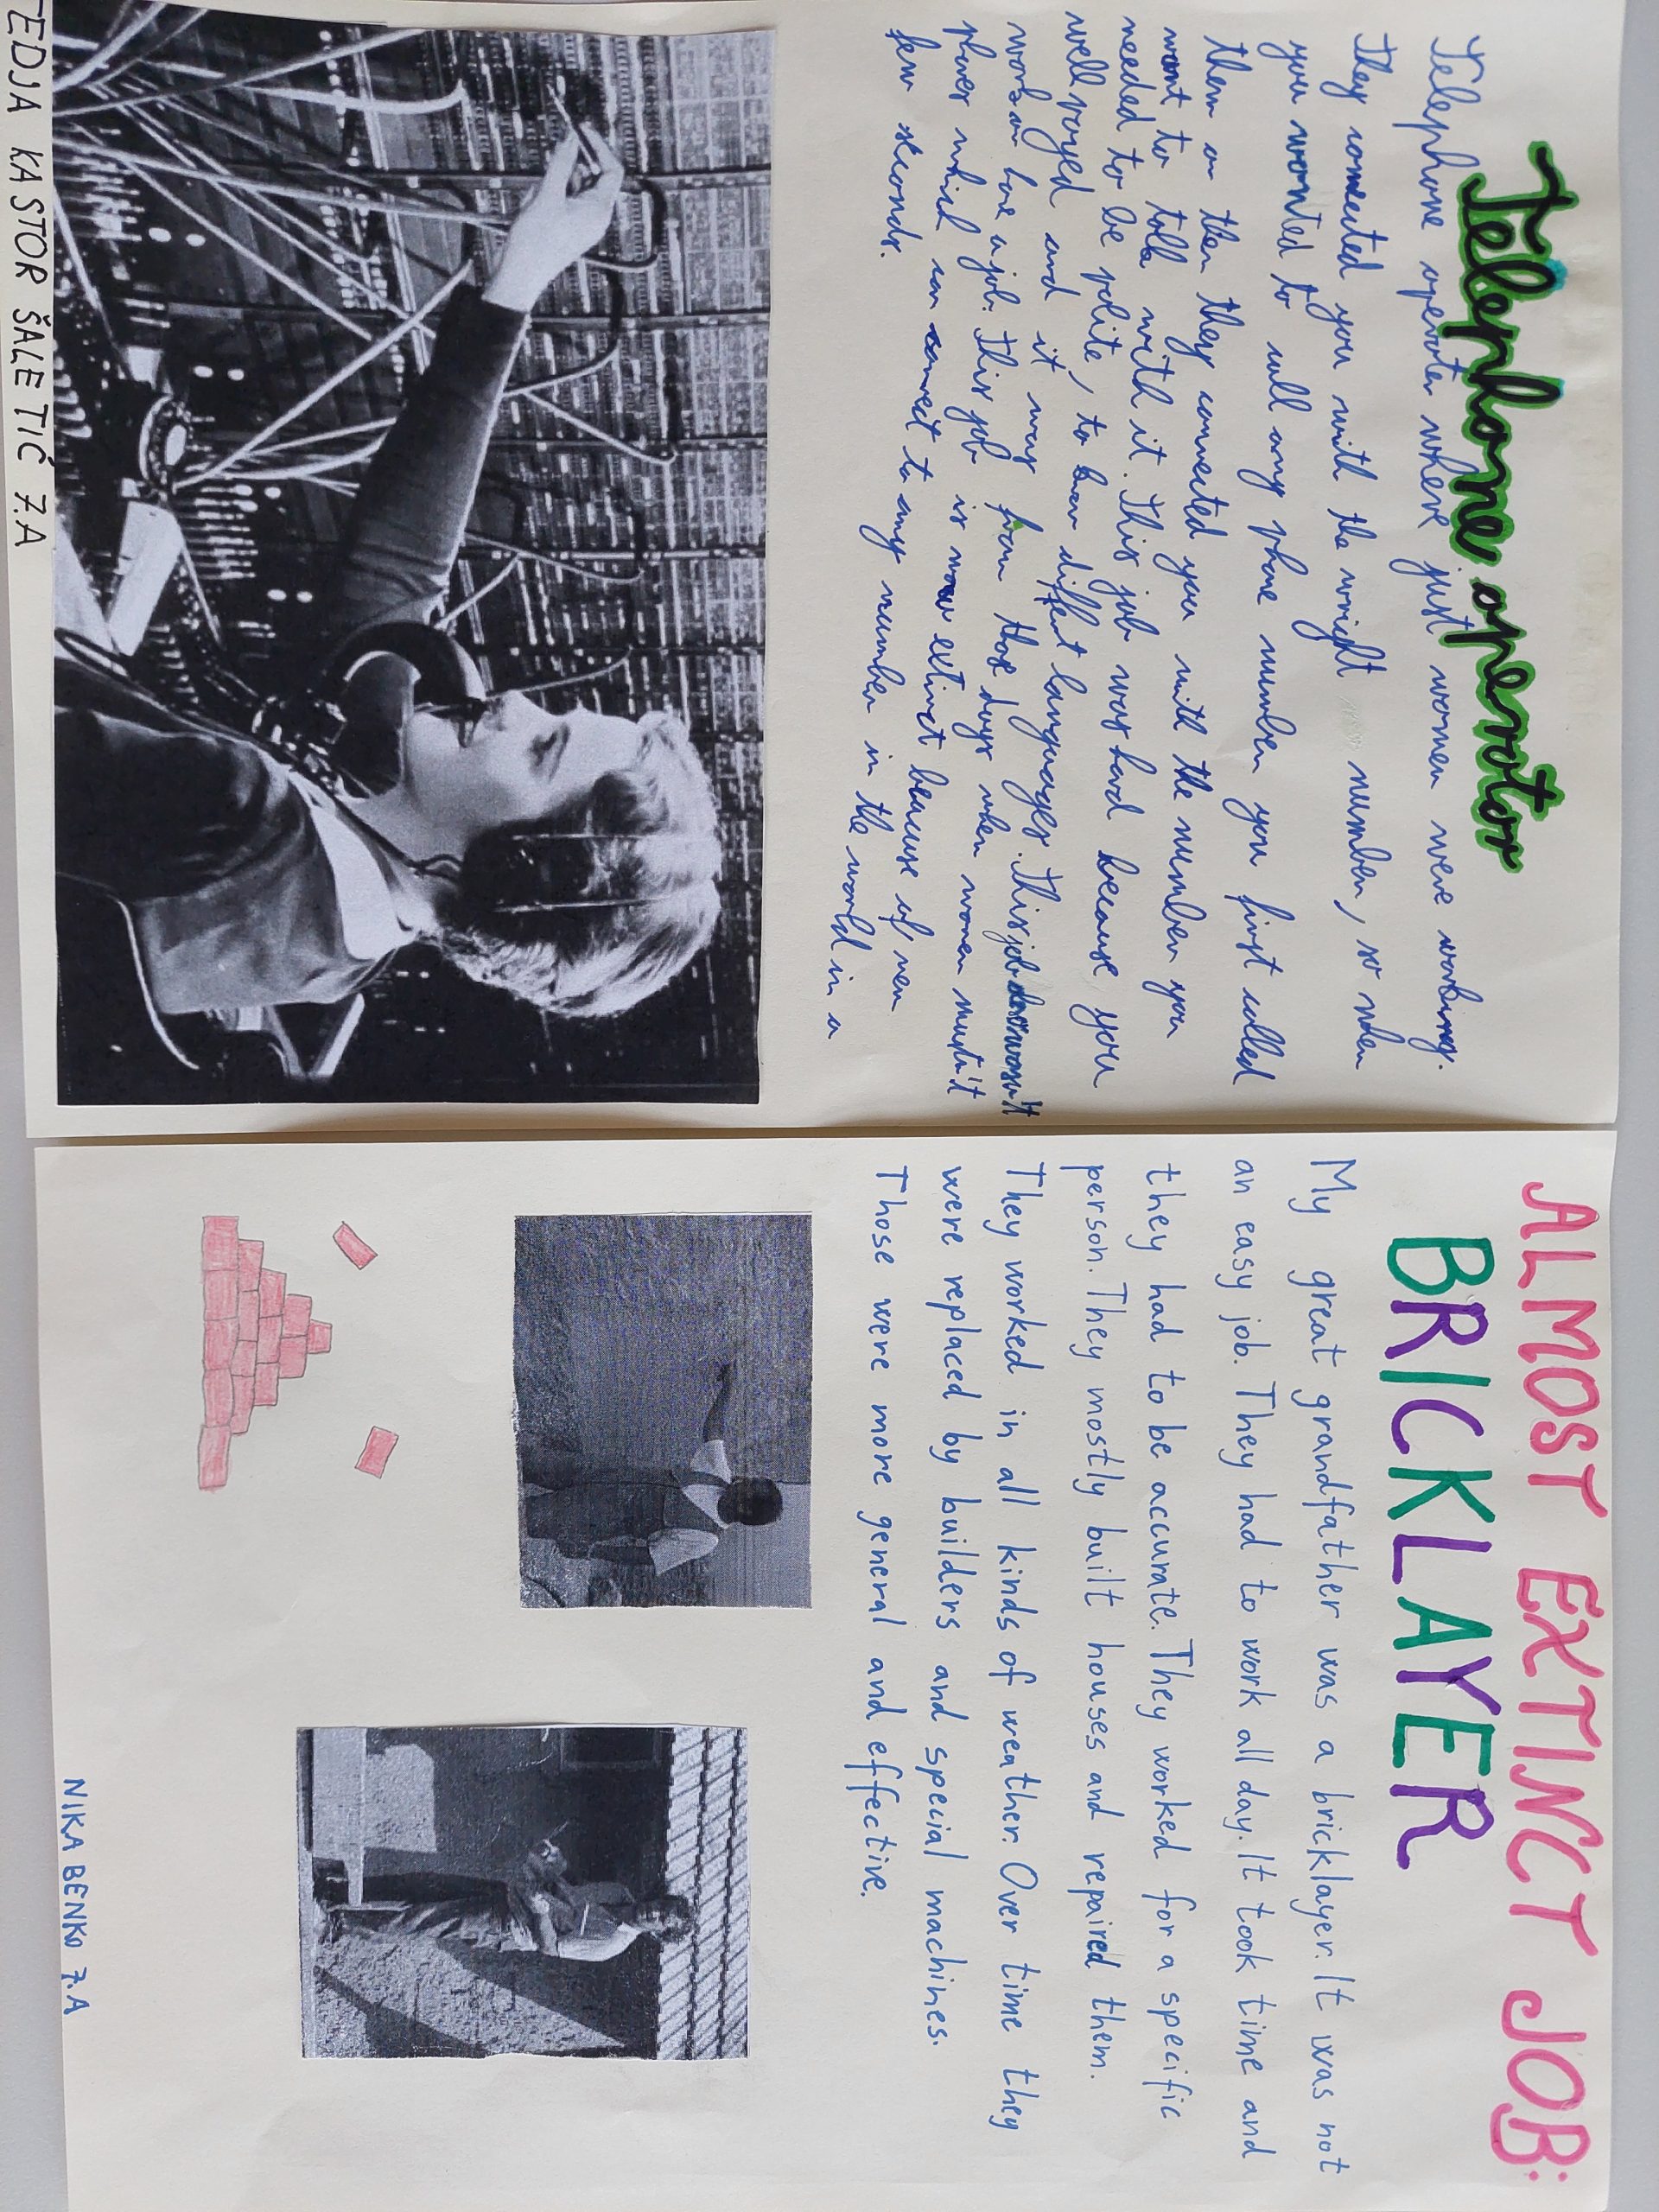 Telephone operator
Telephone operater where just women were working.
They conected you with the wright number, so when
you wonted to call any phone number you first called
them on then they connected you with the number you
want to talk with it. This job was hard because you
needed to be polite, to know diffent languages. This job wasn't
well payed and it was from those days when women mustn't
work or have a job. This job is now extinct because of new
phones which can connect to any number in the world in a
few seconds.
EDJA KASTOR ŠALETIĆ 7.A
ALMOST EXTINCT JOB:
BRICKLAYER
My great grandfather was a bricklayer. It was not
an easy job. They had to work all day. It took time and
they had to be accurate. They worked for a specific
person. They mostly built houses and repaired them.
They worked in all kinds of weather. Over time they
were replaced by builders and special machines.
Those were more general and effective.
NIKA BENKO 7.A